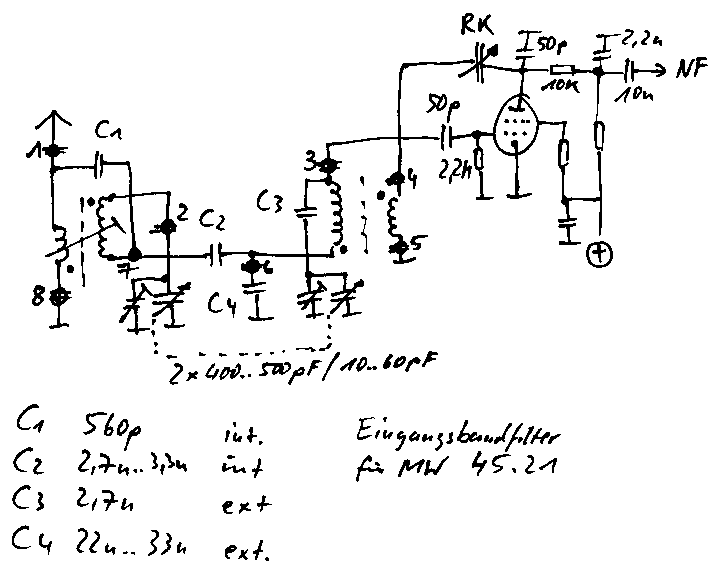 RK
50p
2,2n
10K
10n
NF
50p
2,2M
C1
1
2
3
4
5
6
7
8
C2
C3
C4
+
2 x 400..500pF / 10..60pF
C1 560p int.
C2 2,7n..3,3n int
C3 2,7n ext
C4 22n..33n ext.
Eingangsbandfilter
für MW 45.21